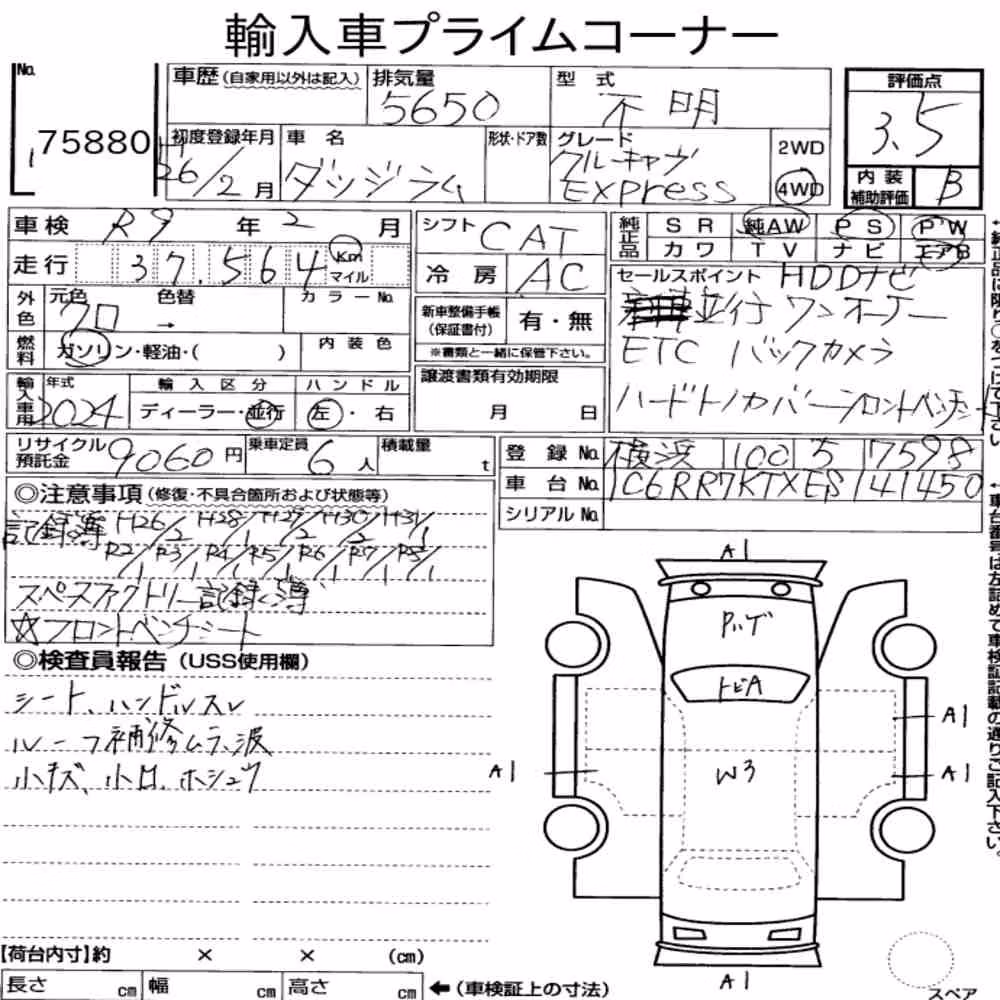 輸入車プライムコーナー
No.
75880
車歴(自家用以外は記入)
排気量
5650
型式
不明
評価点
3.5
初度登録年月
26/2月
車名
ダッジラム
形状・ドア数
グレード
クルーキャブ
EXPRESS
2WD
4WD
内装補助評価
B
車検 R9年2月
シフト CAT
純正品
SR 純AW PS PW
カワ TV ナビ エアB
走行 37,564 Km マイル
冷房 AC
セールスポイント HDDナビ
並行 ワンオーナー
ETC バックカメラ
ハードトノカバー フロントベンチシート
外色 元色 クロ 色替 → カラーNo.
新車整備手帳(保証書付) 有・無
※書類と一緒に保管下さい。
燃料 ガソリン・軽油・( ) 内装色
輸入車用 年式 2024
輸入区分 ディーラー・並行
ハンドル 左・右
譲渡書類有効期限
月 日
リサイクル預託金 9060円
乗車定員 6人
積載量 t
登録No. 横浜 100 7598
車台No. 1C6RR7KTXES141450
シリアルNo.
◎注意事項(修復・不具合箇所および状態等)
記録簿 H26/2 H28/1 H29/2 H30/2 H31/1
R2/1 R3/1 R4/1 R5/1 R6/1 R7/1 R8/1
スペースファクトリー記録簿
☆フロントベンチシート
◎検査員報告(USS使用欄)
シート、ハンドルスレ
ルーフ補修ムラ・波
小キズ、小凹、ホシュウ
A1
トビA
A1
A1
W3
A1
A1
【荷台内寸】約 × × (cm)
長さ cm 幅 cm 高さ cm
←(車検証上の寸法)
スペア
←車台番号は左詰めで車検証記載の通りご記入下さい。